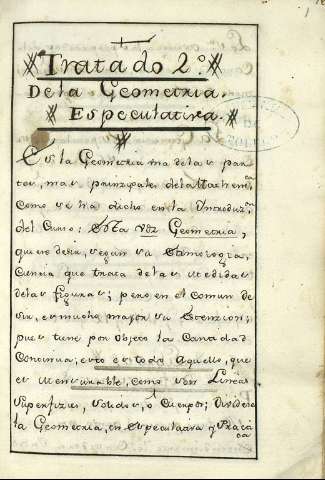 1
Tratado 2º.
De la Geometria.
Especulativa.
Es la Geometria una de las par
tes, mas prinzipales de la Mathemca
como se ha dicho en la Introduzon
del Curso: Esta voz Geometria,
quiere desir, segun su Etimologia,
Ciencia que trata de las Medidas
de las figuras; pero en el comun de
sir, es mucho mayor su Estencion;
pues tiene por objeto la Cantidad
Continua; esto es todo Aquello, que
es Mensurable, como son Lineas
Superfizies, solidos, o Cuerpos; Dividese
la Geometria, en Especulativa y Practica